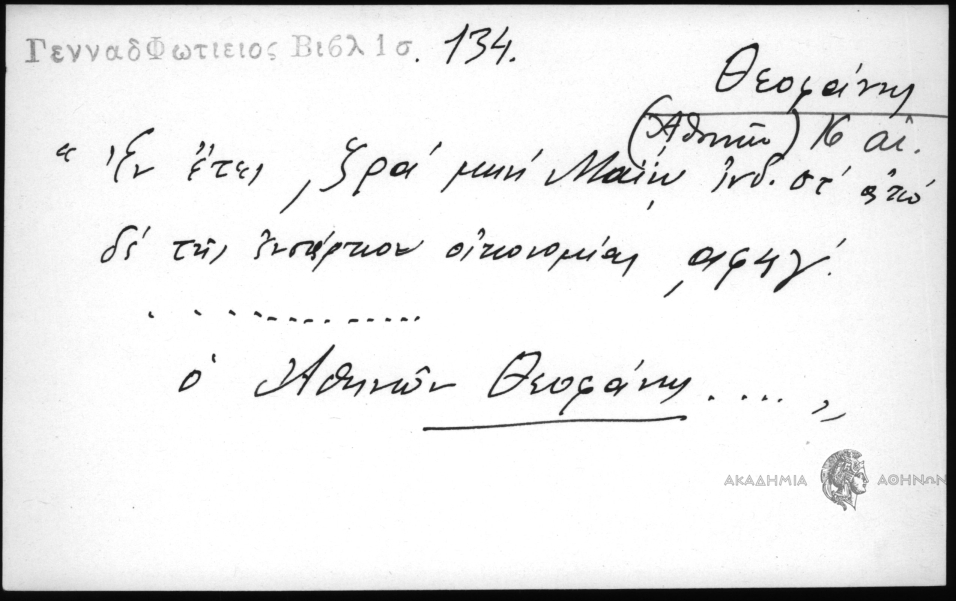 ΓενναδΦωτιειος Βιβλ 1 σ. 134.
Θεοφάνης
(Ἀθηνῶν) 16 αἰ.
“ Ἐν ἔτει ͵ζρα΄ μηνὶ Μαΐῳ ἰνδ. στ΄ ἀπό
δέ τῆς ἐνσάρκου οἰκονομίας ͵αφηγ΄.
. . . . . . . . . . . . . . .
ὁ Ἀθηνῶν Θεοφάνης . . . . ”
ΑΚΑΔΗΜΙΑ ΑΘΗΝΩΝ